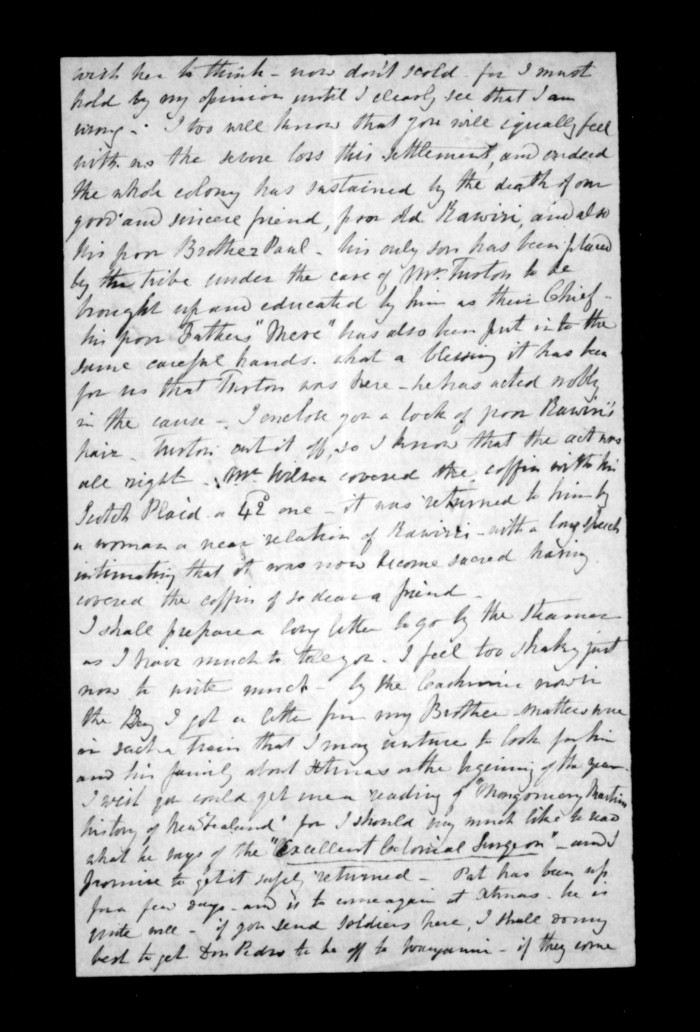 wish her to think - now don't scold - for I must
hold by my opinion until I clearly see that I am
wrong - I too well know that you will equally feel
with us the severe loss this settlement, and indeed
the whole colony has sustained by the death of our
good and sincere friend, poor old Rawiri, and also
his poor Brother Paul - his only son has been placed
by the tribe under the care of Mr. Turton to be
brought up and educated by him as their Chief -
his poor Fathers "Mere" has also been put into the
same careful hands. what a blessing it has been
for us that Turton was here - he has acted nobly
in the cause - I enclose you a lock of poor Rawiri's
hair - Turton cut it off, so I know that the act was
all right - Mr Wilson covered the coffin with his
Scotch Plaid a 42d one - it was returned to him by
a woman a near relation of Rawiri's - with a long speech
intimating that it was now become sacred having
covered the coffin of so dear a friend -
I shall prepare a long letter to go by the Steamer
as I have much to tell you - I feel too shaky just
now to write much - by the now in
the Bay I got a letter from my Brother - matters were
in such a train that I may venture to look for him
and his family about Xtmas or the beginning of the year -
I wish you could get me a reading of "Montgomery Martins
history of New Zealand" for I should very much like to read
what he says of the "Excellent Colonial Surgeon" - and I
promise to get it safely returned - Pat has been up
for a few days - and is to come again at Xtmas - he is
quite well - if you send soldiers here, I shall do my
best to get Don Pedro to be off to Wanganui - if they come